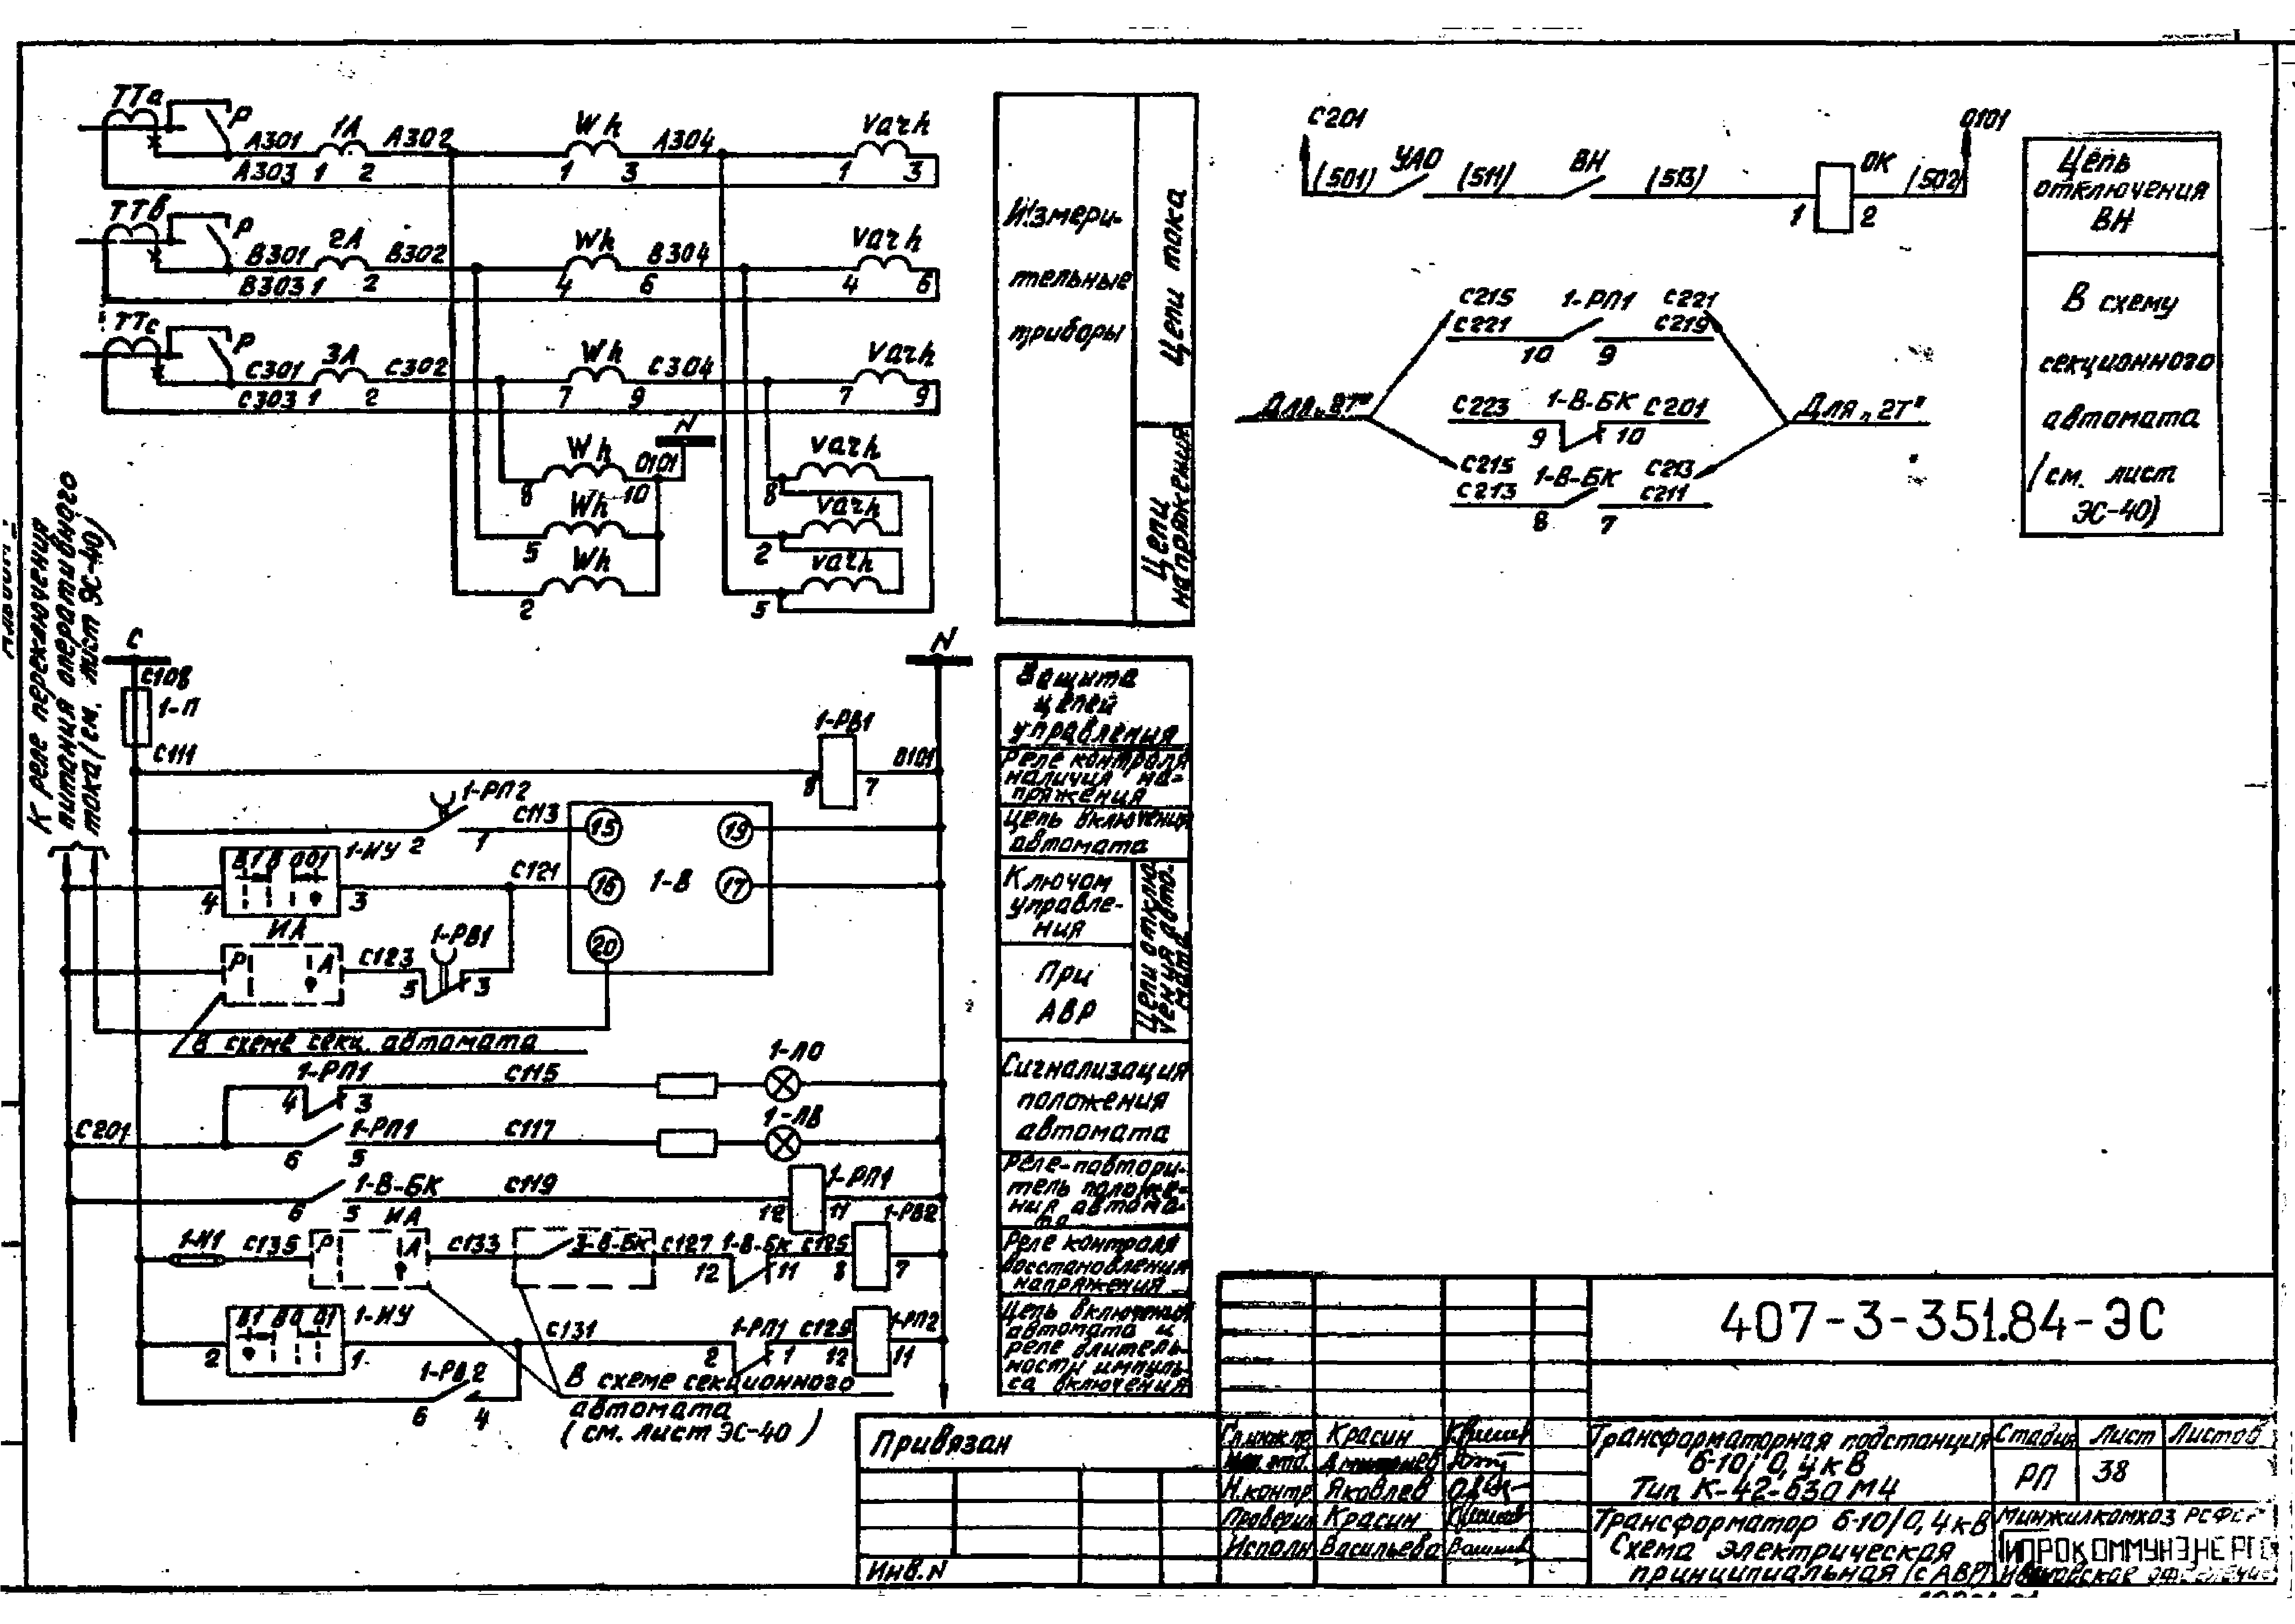 ТТа
Р
А301
1А
А302
Wh
А304
varh
А303
1
2
1
3
1
3
ТТв
Р
В301
2А
В302
Wh
В304
varh
В303
1
2
4
6
4
6
ТТс
Р
С301
3А
С302
Wh
С304
varh
С303
1
2
7
9
7
9
N
Wh
0101
varh
8
10
8
Wh
varh
5
2
Wh
varh
2
5
Измери-
тельные
приборы
Цепи тока
Цепи
напряжения
С201
0101
(501)
УАО
(511)
ВН
(513)
ОК
(502)
1
2
Цепь
отключения
ВН
С215
1-РП1
С221
С221
С219
10
9
Для „2Т"
С223
1-В-БК
С201
Для „2Т"
9
10
С215
1-В-БК
С213
С213
С211
8
7
В схему
секционного
автомата
/см. лист
ЭС-40)
К реле переключения
питания оперативного
тока (см. лист ЭС-40)
С
N
С108
1-П
С111
1-РВ1
0101
8
7
1-РП2
С113
2
1
15
19
1-КУ
С121
16
1-В
17
4
3
20
ИА
1-РВ1
Р
А
С123
5
3
В схеме секц. автомата
1-РП1
С115
1-ЛО
4
3
С201
1-РП1
С117
1-ЛВ
6
5
1-В-БК
С119
1-РП1
6
5
12
11
ИА
1-РВ2
1-И1
С135
Р
А
С133
3-В-БК
С127
1-В-БК
С125
12
11
8
7
В1 В0 01
1-КУ
С131
1-РП1
С129
1-РП2
2
1
2
1
12
11
1-РВ2
6
4
В схеме секционного
автомата
(см. лист ЭС-40)
Защита
цепей
управления
Реле контроля
наличия на-
пряжения
Цепь включения
автомата
Ключом
управле-
ния
При
АВР
Цепи отклю-
чения авто-
мата
Сигнализация
положения
автомата
Реле-повтори-
тель положе-
ния автома-
та
Реле контроля
восстановления
напряжения
Цепь включения
автомата и
реле длитель-
ности импуль-
са включения
Привязан
Инв.N
407-3-351.84-ЭС
Гл.инж.пр. Красин
Н.контр Яковлев
Проверил Красин
Исполн Васильева
Трансформаторная подстанция
6-10/0,4кВ
Тип К-42-630 М4
Стадия Лист Листов
РП 38
Трансформатор 6-10/0,4кВ
Схема электрическая
принципиальная (с АВР)
Минжилкомхоз РСФСР
ГИПРОКОММУНЭНЕРГО
Ивановское отделение